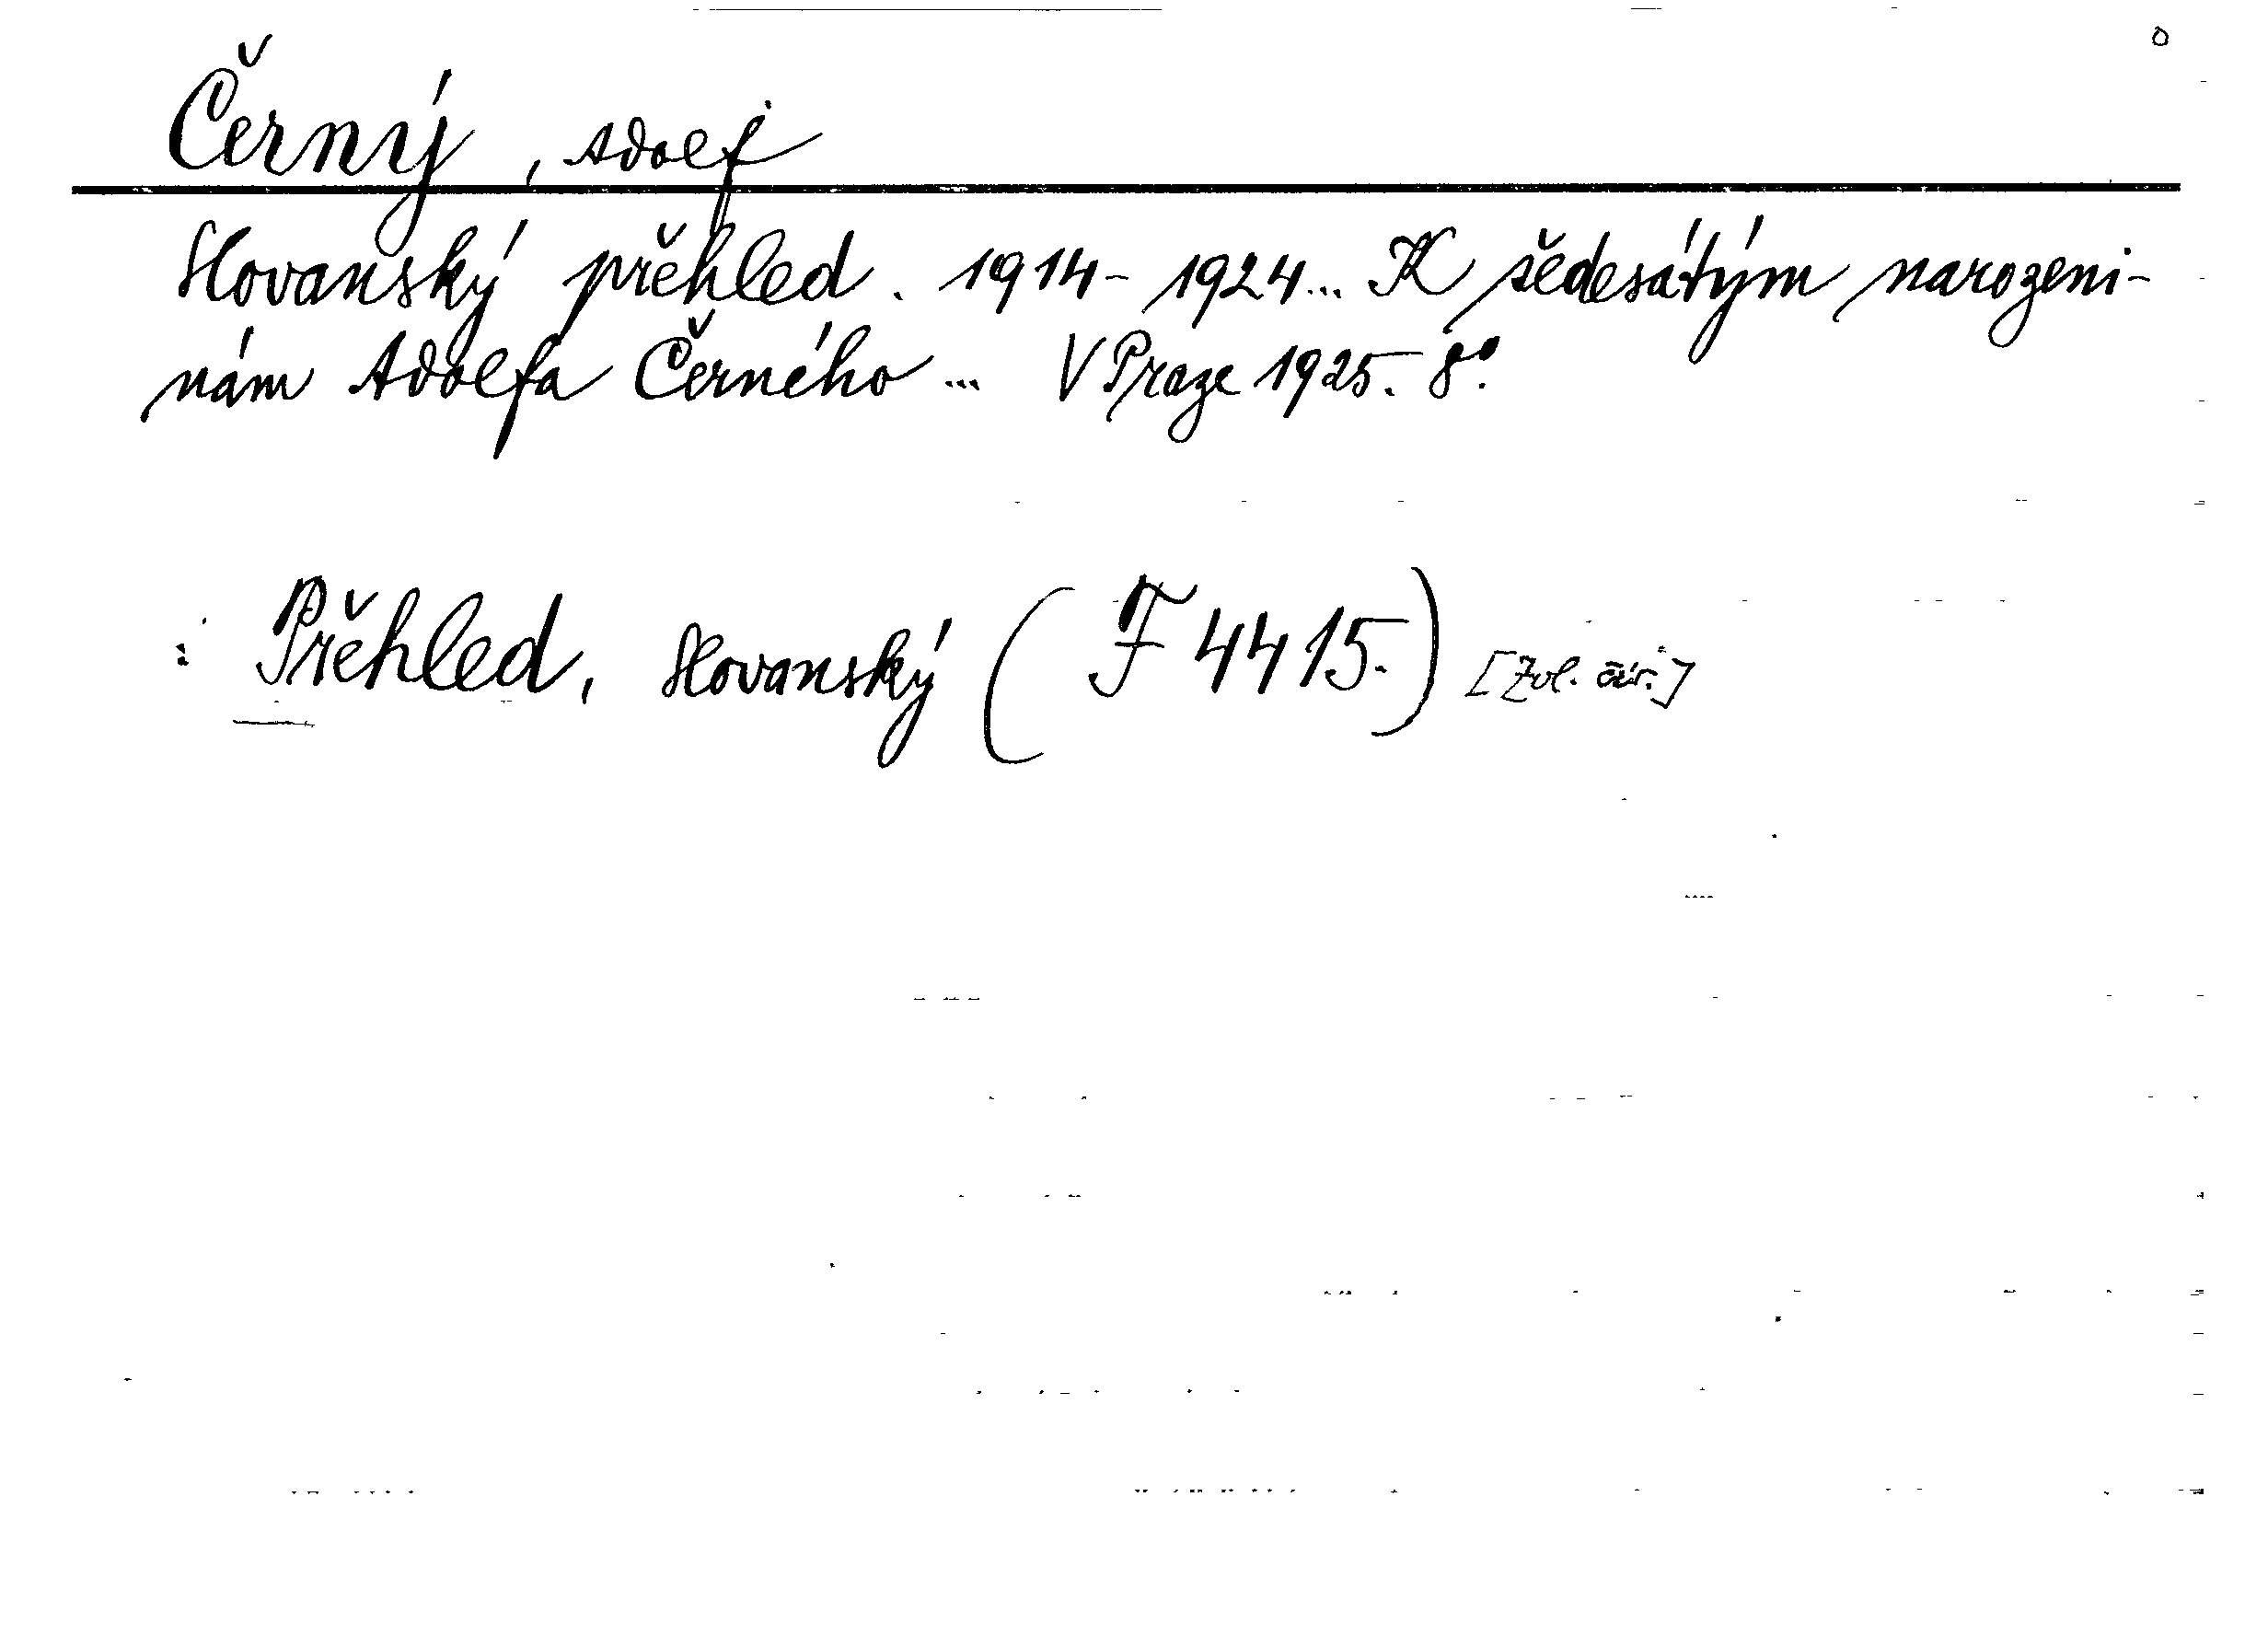 Černý, Adolf
Slovanský přehled. 1914-1924... K šedesátým narozeni-
nám Adolfa Černého... V Praze 1925. 8°.
: Přehled, Slovanský (F 4415.) [Zvl. čís.]